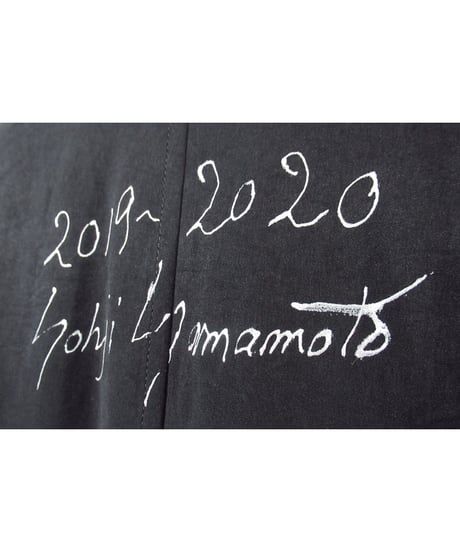 2019~2020
Yohji Yamamoto